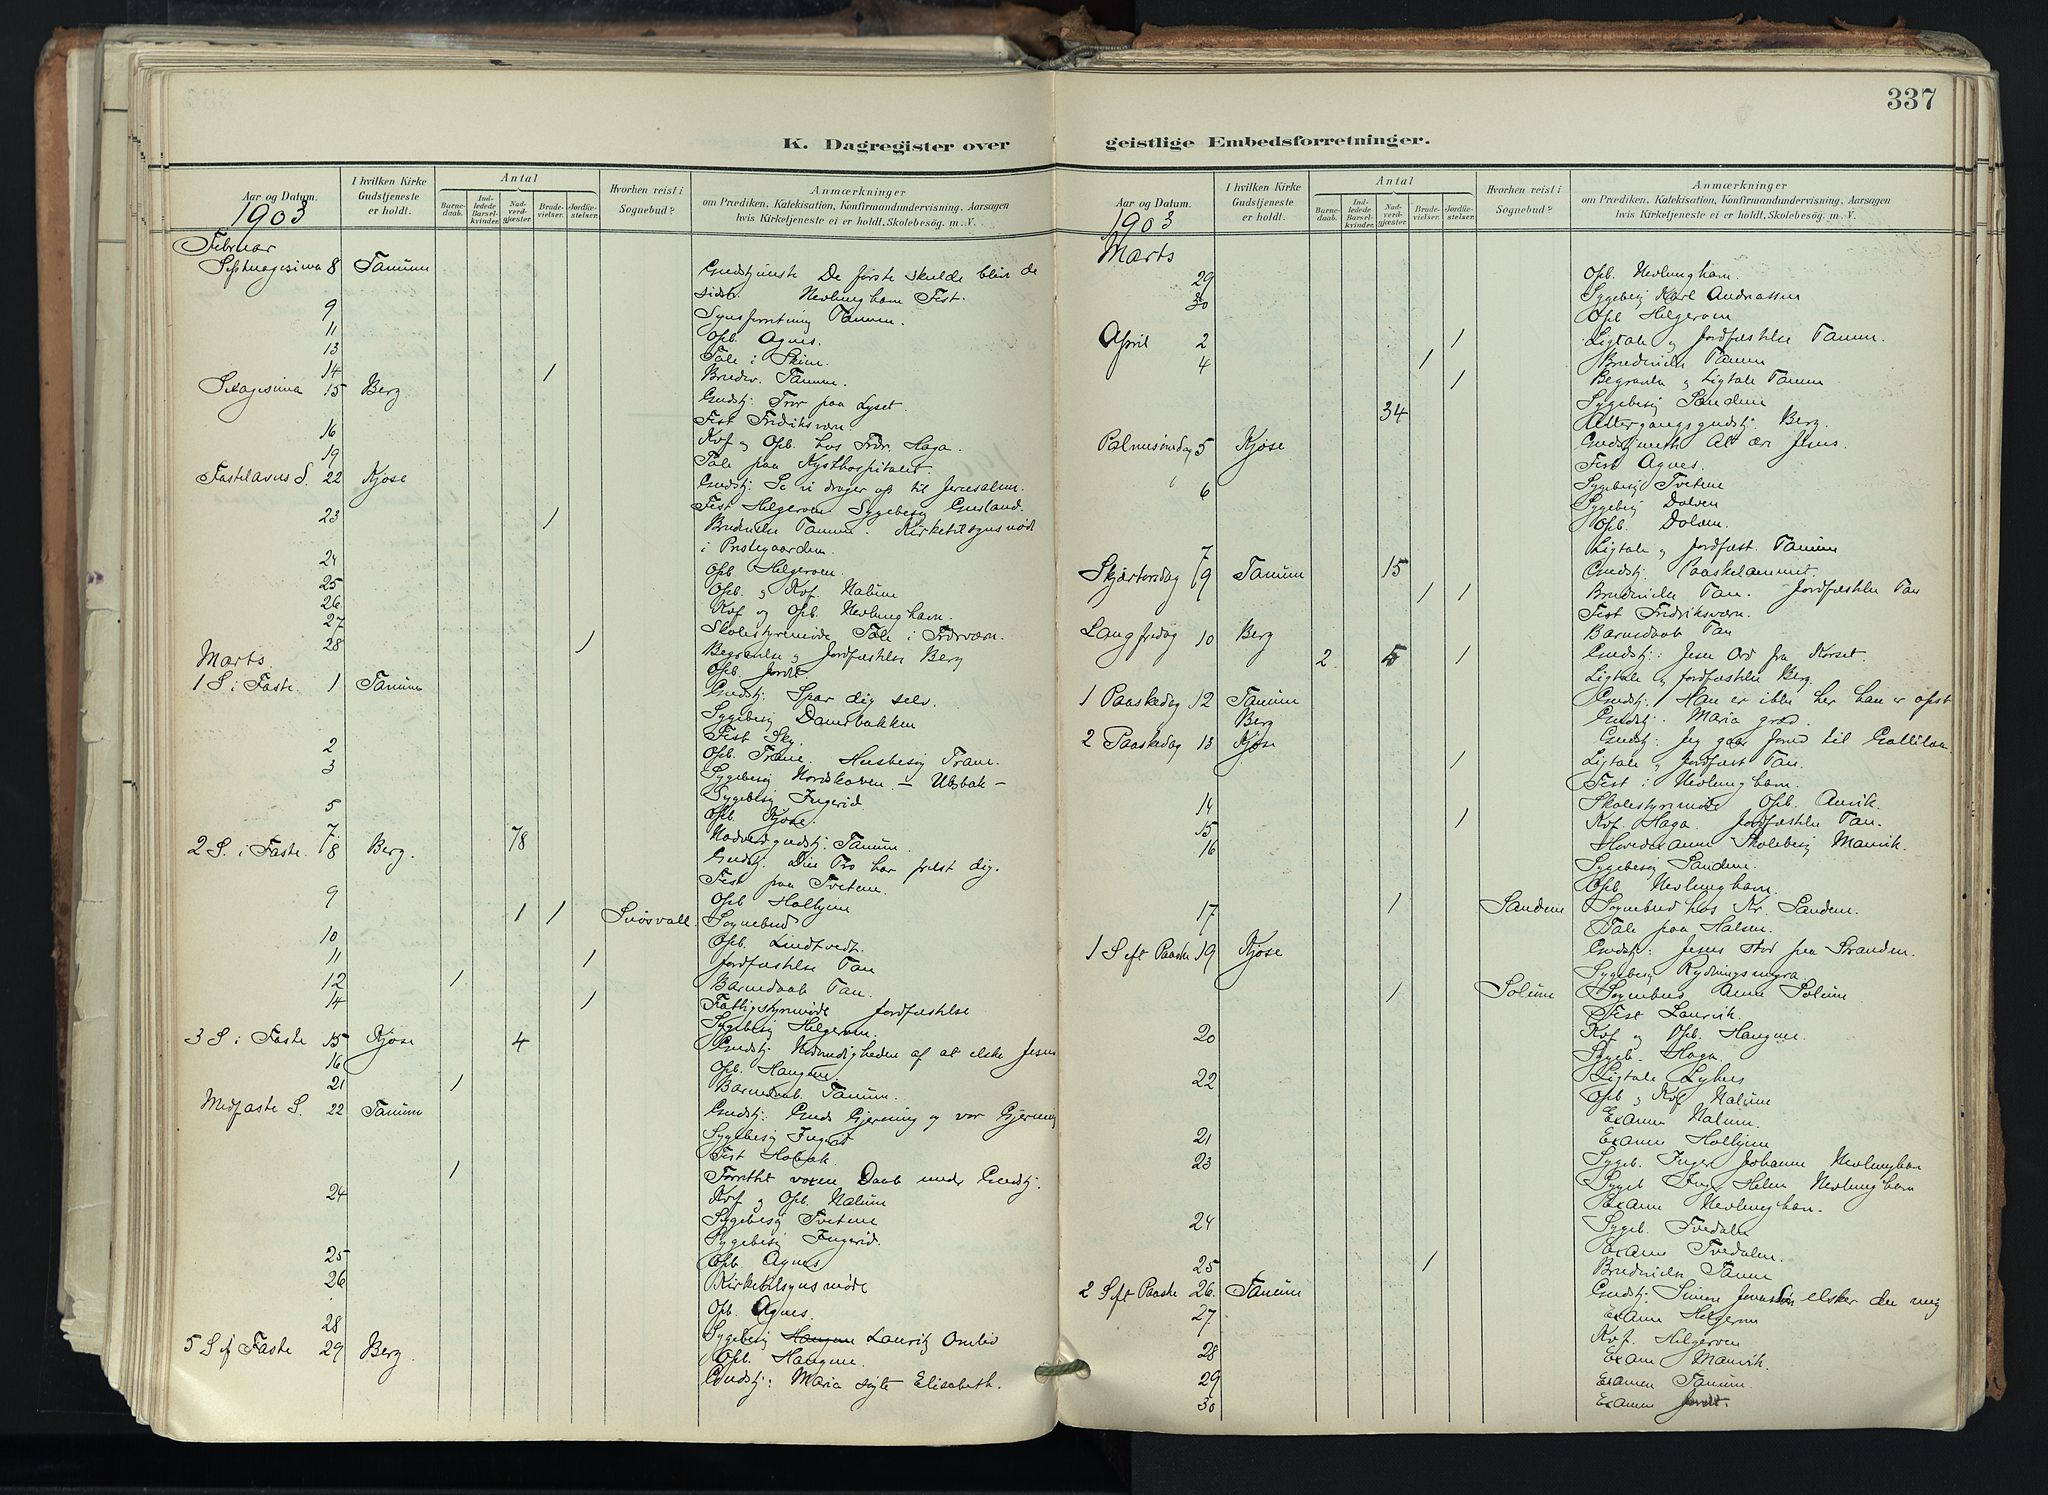 337
K. Dagregister over
Antal
Aar og Datum.
I hvilken Kirke Gudstjeneste er holdt.
Barnedaab.
Indledede Barselkvinder.
Nadverdgjester.
Brudevielser.
Jordfæstelser.
Hvorhen reist i Sognebud?
Anmærkninger
om Prædiken, Katekisation, Konfirmandundervisning, Aarsagen
hvis Kirketjeneste ei er holdt, Skolebesög. m. V.
1903
Februar
Septuagesima 8 Tanum Gudstjeneste De første skulde blive de
sidste. Nevlunghavn Fest.
9 Synsforretning Tanum.
11 Opb. Agnes.
13 Tale i
14 1 Brudev. Tanum.
Sexagesima 15 Berg Gudstj: Tror paa Lyset.
Fest Fredriksværn
16 Kof og Opb. hos Fredr. Haga.
19 Tale paa Kysthospitalet.
Fastelavns S. 22 Kjøse Gudstj: Se vi drager op til Jerusalem.
Fest Helgeroen Sygebesøg
23 1 Brudevielse Tanum. Kirketilsynsmøde
i Prestegaarden.
24 Opb. Helgeroen.
25 Opb. og Kof. Nalum
26 Kof og Opb. Nevlunghavn.
27 Skolestyremøde Tale i Frdrværn.
28 1 Begravelse og Jordfæstelse Berg
Marts. Opb. Jordet.
1 S. i Faste. 1 Tanum Gudstj: Spar dig selv.
Sygebesøg
Fest Sky.
2 Opb. Trane. Husbesøg Trane.
3 Sygebesøg
Sygebesøg Ingerid
5 Opb. Kjøse.
7 78 Nadverdgudstj: Tanum.
2 S. i Faste. 8 Berg. Gudstj: Din Tro har frelst dig.
Fest paa Tvetene.
9 Opb. Holtejne
1 1 Sognebud
10 Opb. Lindtvedt.
11 1 Jordfæstelse Tan
12 1 Barnedaab Tan.
14 1 Fattigstyremøde Jordfæstelse
Sygebesøg Helgeroen.
3 S. i Faste 15 Kjøse 4 Gudstj: Nødvendigheden af at elske Jesus
16 Opb. Haugene.
21 1 Barnedaab Tanum.
Midfaste S. 22 Tanum Gudstj: Guds Gjerning og vor Gjerning
Sygebesøg
Fest
1 Forrettet voxen Daab under Gudstj.
24 Kof og Opb. Nalum
Sygebesøg Tvetene
Sygebesøg Ingerid.
25 Opb. Agnes
26 Kirketilsynsmøde
Opb. Agnes.
28 Sygebesøg Haugene Lauritz Ombo
Opb. Haugene.
5 S. i Faste 29 Berg. Gudstj: Maria søgte Elisabeth.
geistlige Embedsforretninger.
Antal
Aar og Datum.
I hvilken Kirke Gudstjeneste er holdt.
Barnedaab.
Indledede Barselkvinder.
Nadverdgjester.
Brudevielser.
Jordfæstelser.
Hvorhen reist i Sognebud?
Anmærkninger
om Prædiken, Katekisation, Konfirmandundervisning, Aarsagen
hvis Kirketjeneste ei er holdt, Skolebesög. m. V.
1903
Marts Opb. Nevlunghavn.
29 Sygebesøg Karl Andreassen
30 Opb. Helgeroen
April 2 1 Ligtale og Jordfæstelse Tanum.
4 1 Brudevielse Tanum
1 Begravelse og Ligtale Tanum
Sygebesøg Sandene
34 Altergangsgudstj. Berg.
Palmesøndag 5 Kjøse Gudstjeneste Alt ær Jesus.
Fest Agnes.
6 Sygebesøg Tvetene
Sygebesøg Dolven
Opb. Dolven.
7 Ligtale og Jordfæst. Tanum
Skjærtorsdag 9 Tanum 15 Gudstj. Paaskelammet.
1 1 Brudevielse Tan. Jordfæstelse Tan
Fest Fredriksværn.
Barnedaab Tan
Langfredag 10 Berg 2 5 1 Gudstj: Jesu Ord fra Korset.
Ligtale og Jordfæstelse Berg.
1 Paaskedag 12 Tanum Gudstj: Han er ikke her han er opst
Berg Gudstj. Maria græd.
2 Paaskedag 13 Kjøse Gudstj: Jeg gaar forud til Gallilæa
1 Ligtale og Jordfæst Tan.
Fest i Nevlunghavn.
14 Skolestyremøde Opb.
15 1 Kof Haga. Jordfæstelse Tan.
16 Hovedexamen Skolebesøg Manvik.
Sygebesøg Sandene.
Opb. Nevlunghavn.
17 1 Sandene Sognebud hos Kr. Sandene.
Tale paa Halsen.
1 S eft Paaske 19 Kjøse Gudstj: Jesus stod paa Stranden.
Sygebesøg
1 Solum Sognebud Anne Solum
Fest Laurvik.
20 Kof og Opb. Haugene.
Sygeb. Haga
22 Ligtale
Opb og Kof Nalum
Examen Nalum.
21 Examen Holtejne
23 Sygeb. Inger Johanne Nevlunghavn
Sygeb Helene Nevlunghavn
Examen Nevlunghavn.
24 Sygeb. Tvedalen
Examen Tvedalen.
25 1 Brudevielse Tanum
2 S eft Paaske 26. Tanum Gudstj: Simon Jonassøn elsker du mig
27 Examen Helgeroen
Kof. Helgeroen
28 Examen Manvik.
29 Examen Tanum.
30 Examen Jordet.